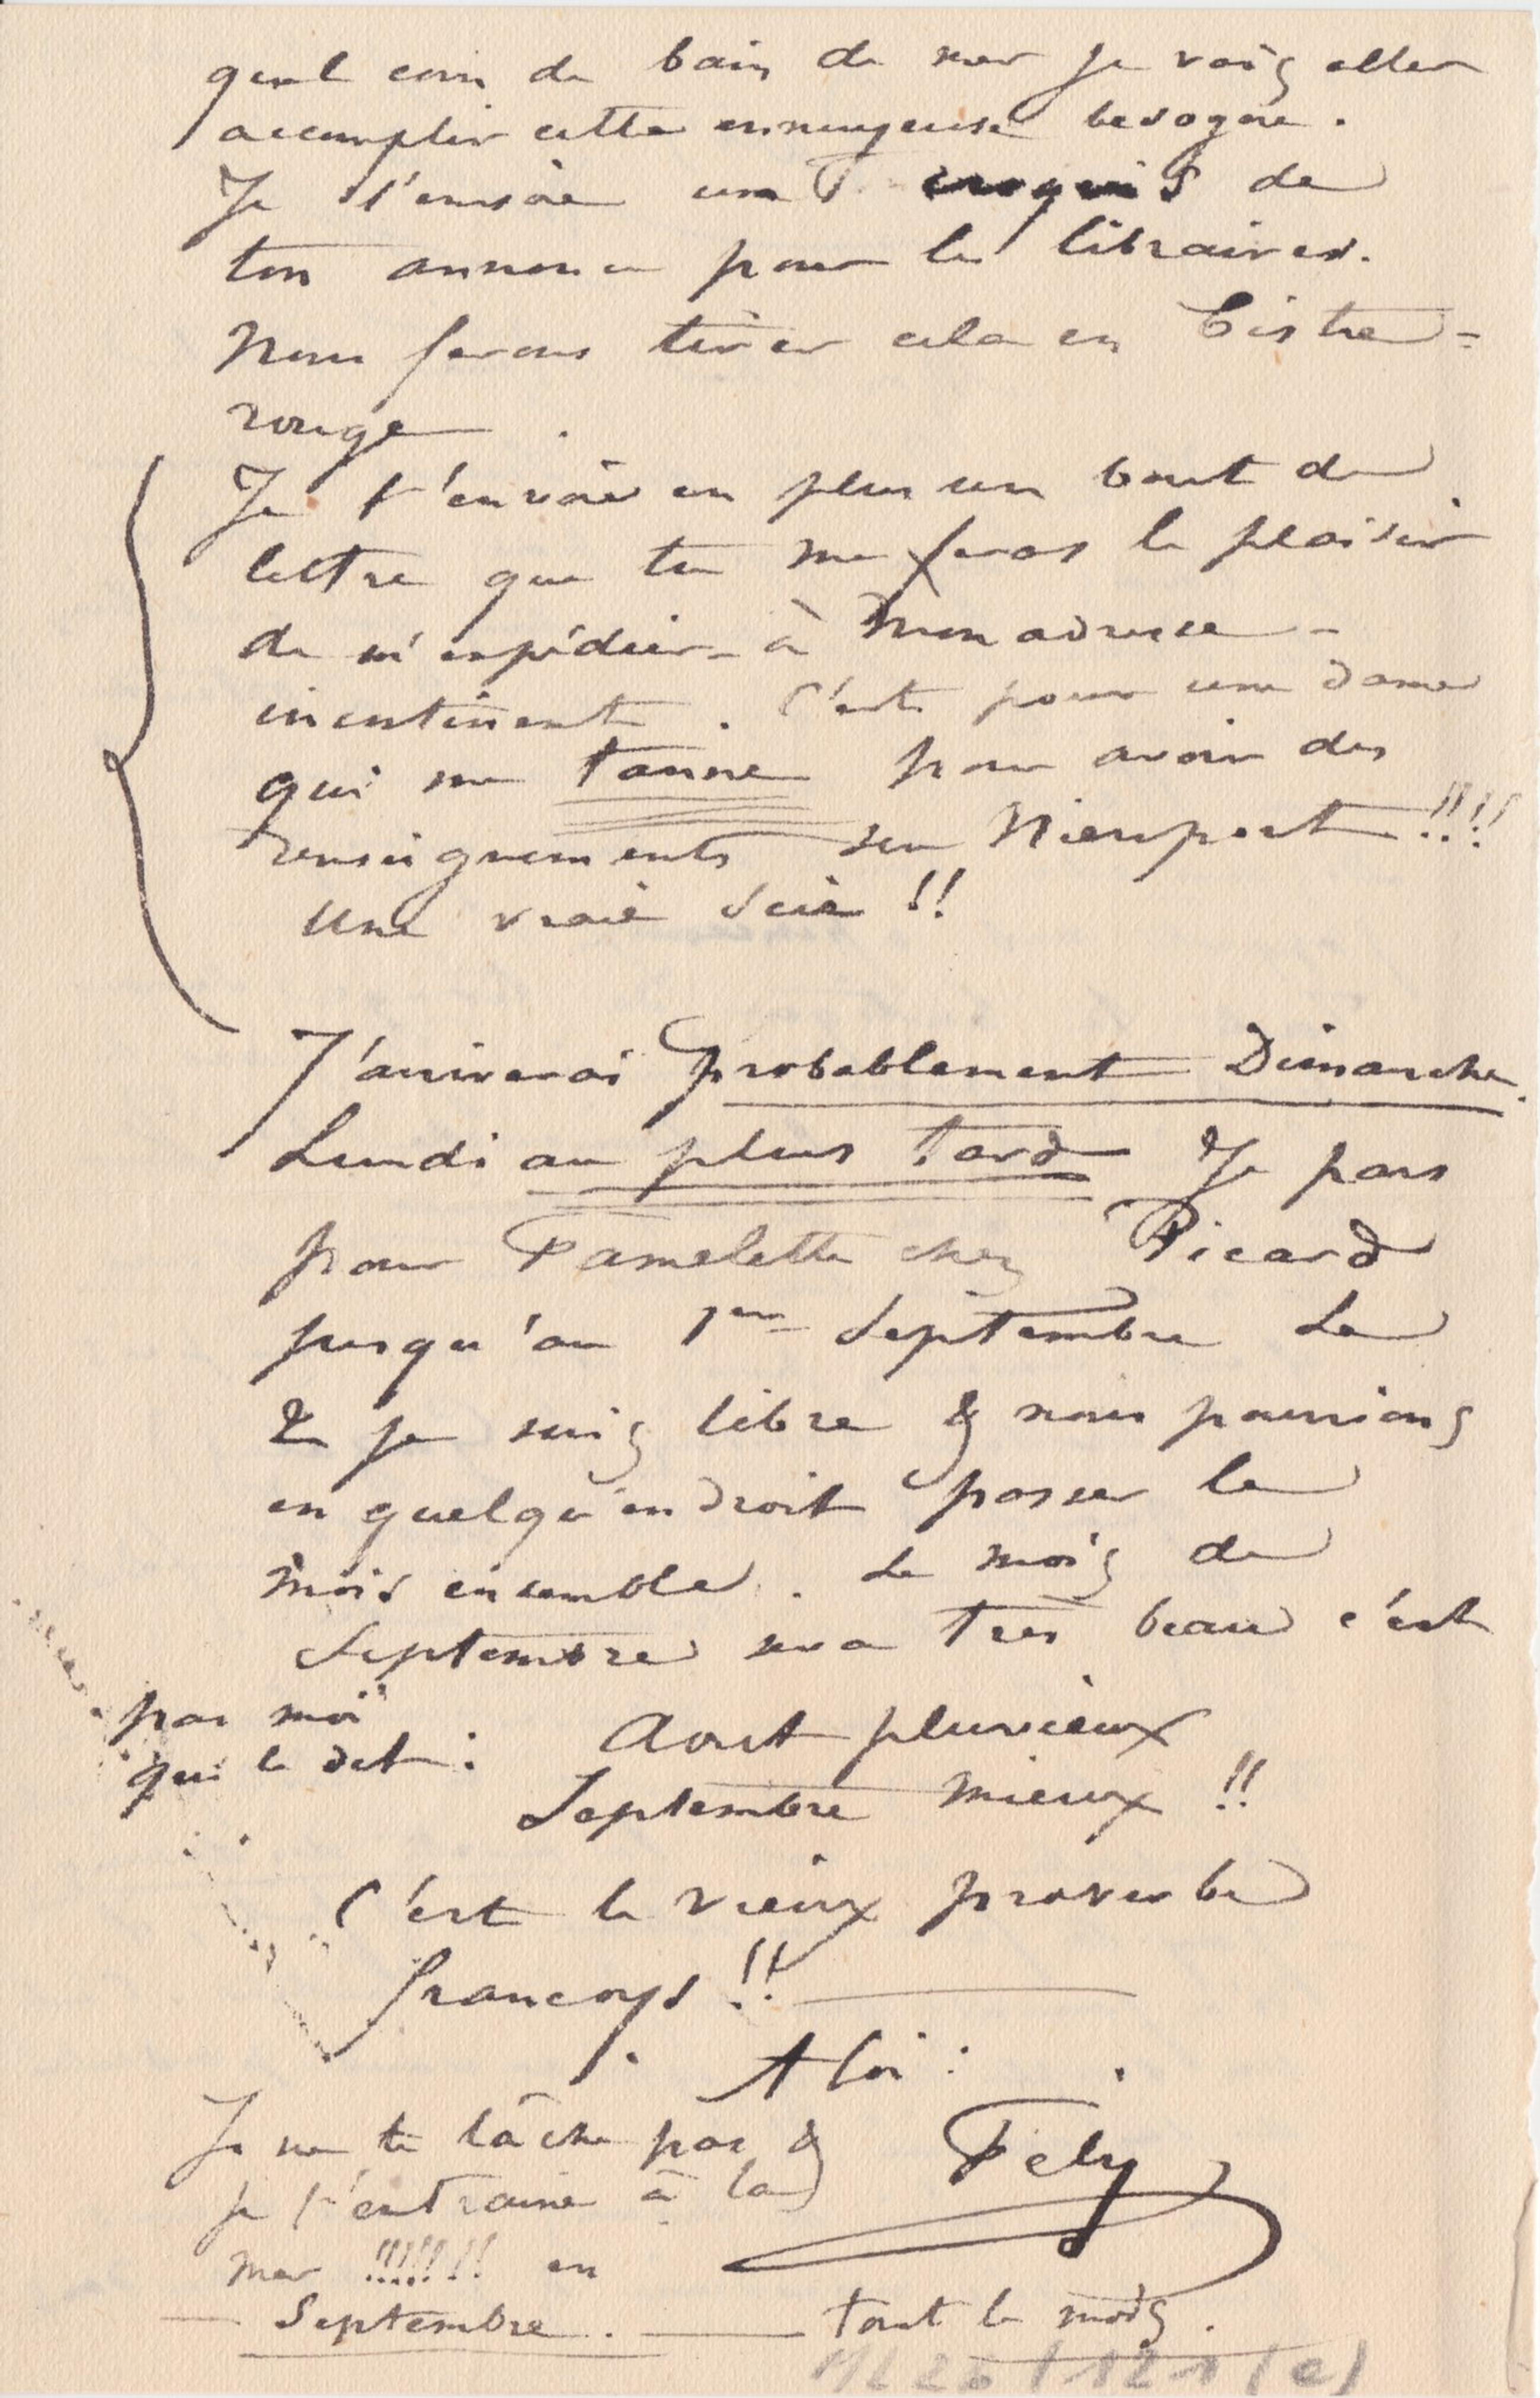 quel coin de bain de mer je vais aller
accomplir cette ennuyeuse besogne.
Je t'envoie un croquis de
ton annonce pour les libraires.
Nous ferons tirer cela en Bistre=
rouge.
Je t'envoie en plus un bout de
lettre que tu me feras le plaisir
de m'expédier à mon adresse
incontinent. C'est pour une dame
qui me tanne pour avoir des
renseignements sur Nieuport !!!!
Une vraie scie !!
J'arriverai probablement Dimanche.
Lundi au plus tard Je pars
pour Famelette chez Picard
jusqu'au 1er Septembre Le
2 je suis libre & nous pourrions
en quelqu'endroit passer le
mois ensemble. Le mois de
Septembre sera très beau c'est
pas moi
qui le dit : Aout pluvieux
Septembre mieux !!
C'est le vieux proverbe
françoys !!
A toi :
Je ne te lâche pas & Fély
je t'entraine à la
mer !!!!!! en
Septembre. — tout le mois.